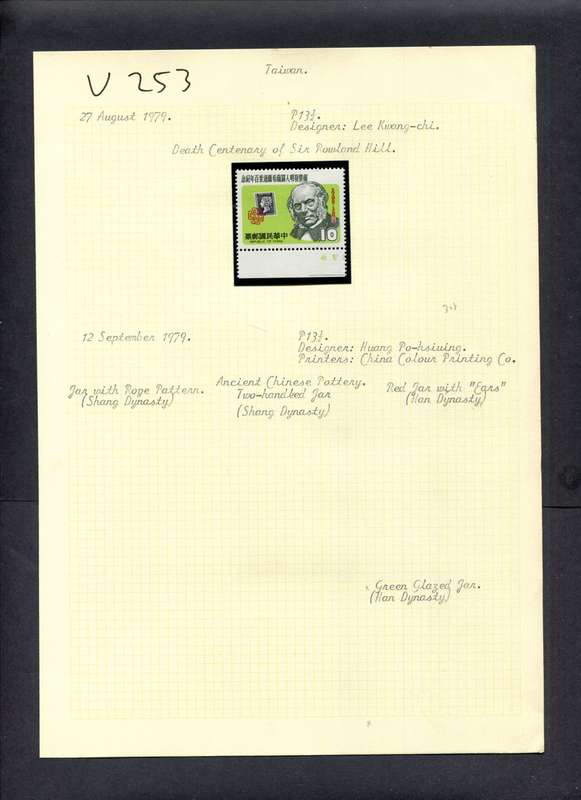 Taiwan.
V 253
27 August 1979.
P13½.
Designer: Lee Kwang-chi.
Death Centenary of Sir Rowland Hill.
10
票郵國民華中
REPUBLIC OF CHINA
12 September 1979.
P13½.
Designer: Huang Po-hsiuing.
Printers: China Colour Printing Co.
Ancient Chinese Pottery.
Jar with Rope Pattern.
(Shang Dynasty)
Two-handled Jar
(Shang Dynasty)
Red Jar with "Ears"
(Han Dynasty)
Green Glazed Jar.
(Han Dynasty)